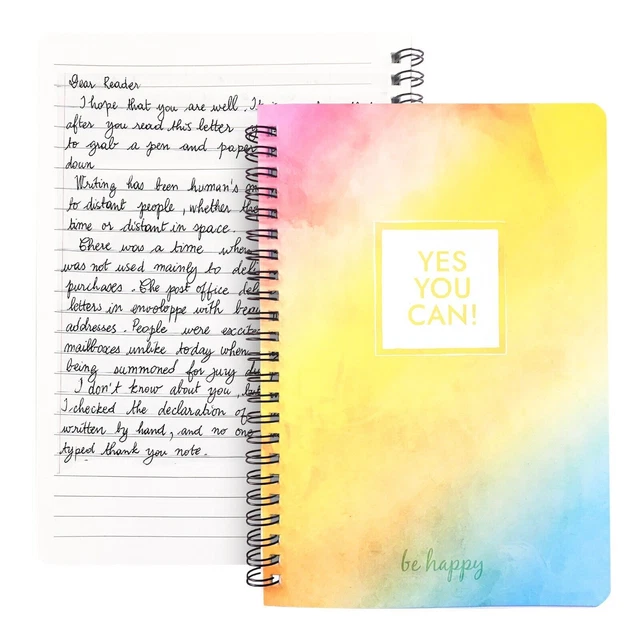 Dear Reader
I hope that you are well. I
after you read this letter
to grab a pen and paper
down
Writing has been human's
to distant people, whether
time or distant in space.
There was a time when
was not used mainly to
purchases. The post office
letters in enveloppe with
addresses. People were
mailboxes unlike today when
being summoned for jury
I don't know about you,
I checked the declaration of
written by hand, and no one
typed thank you note.
YES
YOU
CAN!
be happy